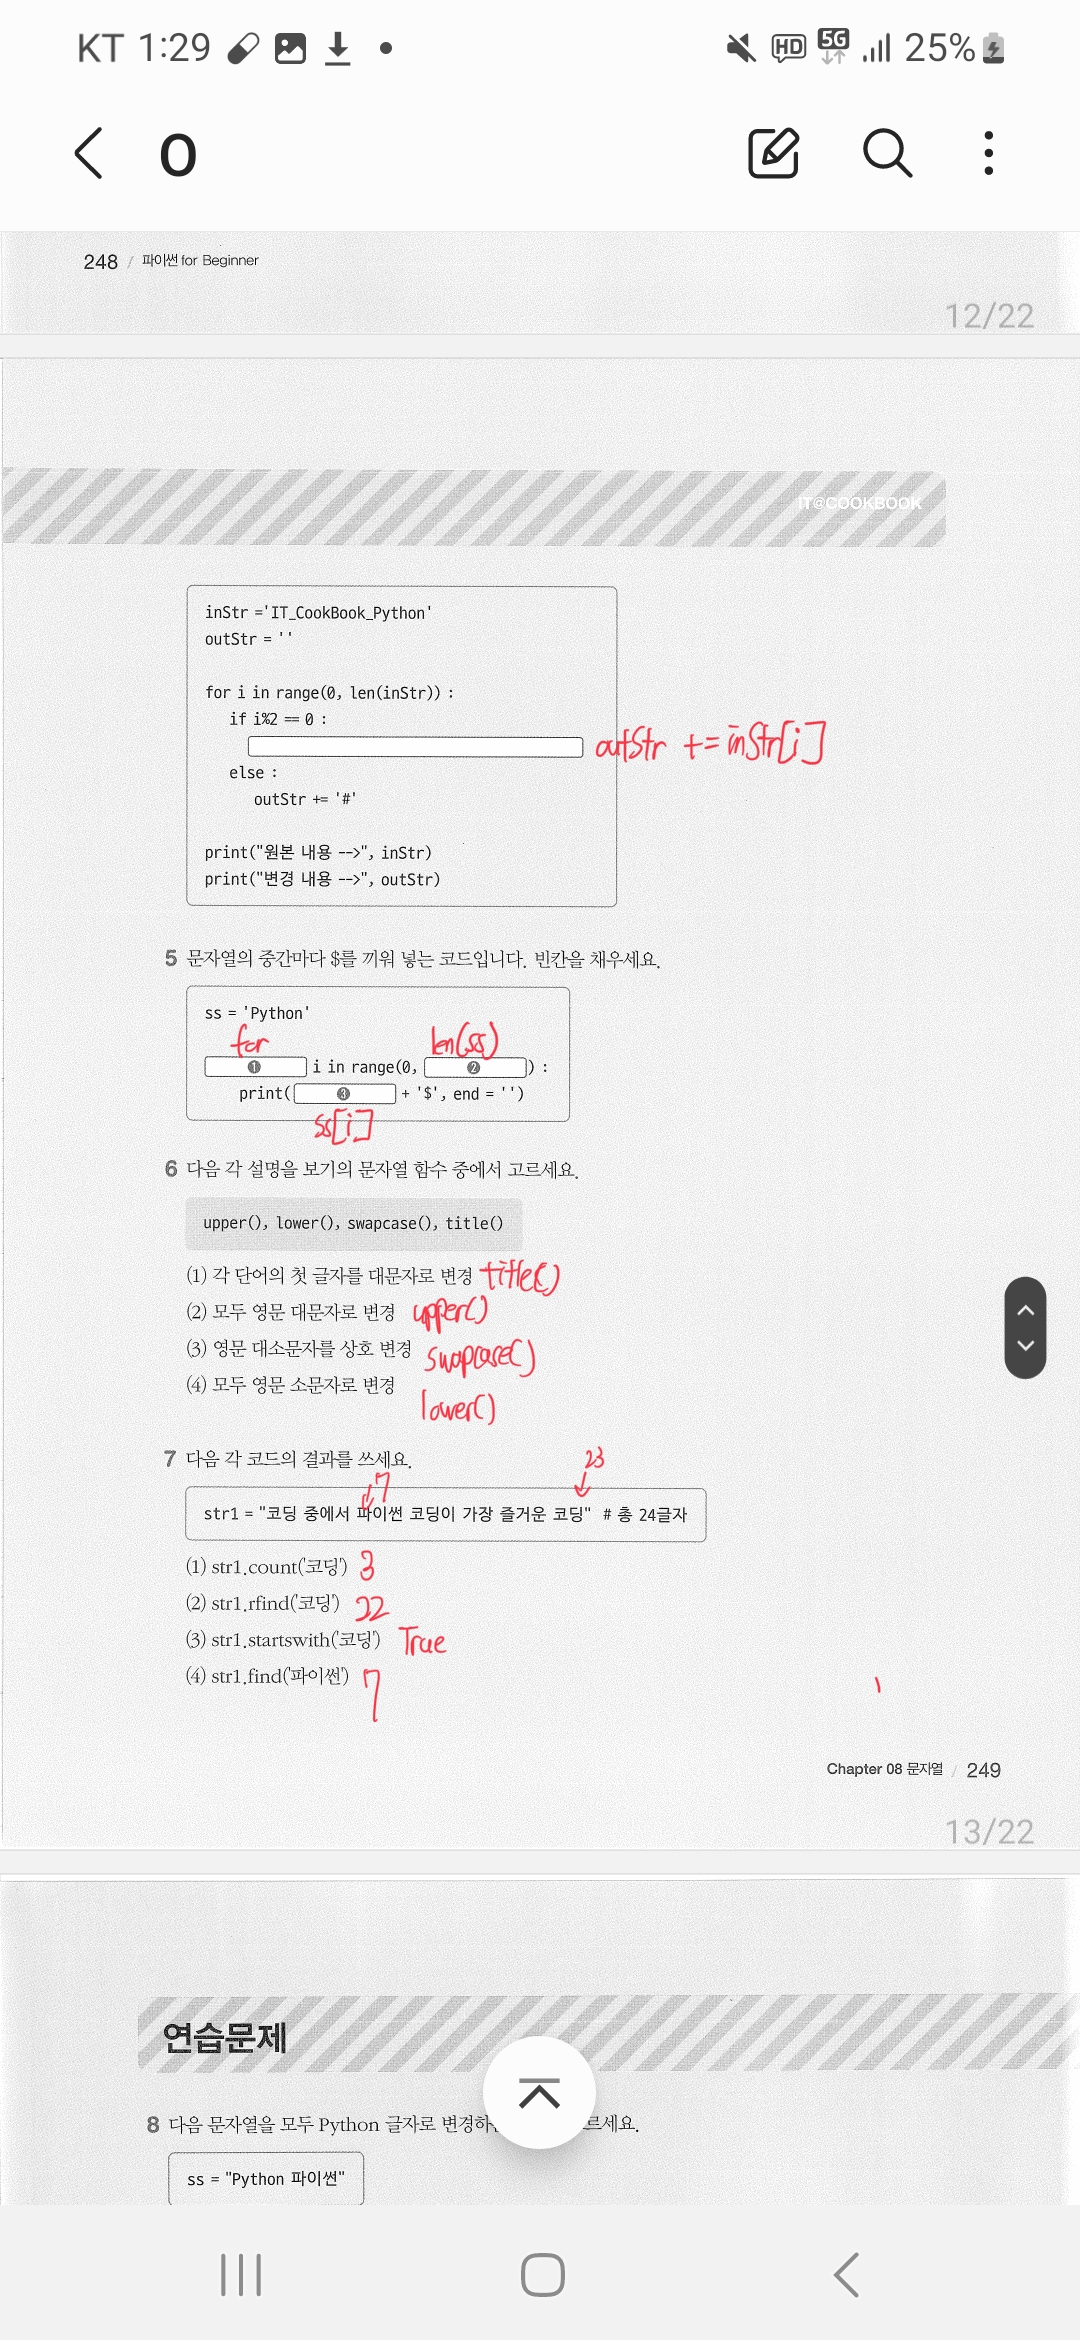 KT 1:29
HD 5G 25%
0
248 / 파이썬 for Beginner
12/22
IT@COOKBOOK
inStr ='IT_CookBook_Python'
outStr = ''
for i in range(0, len(inStr)) :
if i%2 == 0 :
outStr += inStr[i]
else :
outStr += '#'
print("원본 내용 -->", inStr)
print("변경 내용 -->", outStr)
5 문자열의 중간마다 $를 끼워 넣는 코드입니다. 빈칸을 채우세요.
ss = 'Python'
for len(ss)
❶ i in range(0, ❷ ) :
print( ❸ + '$', end = '')
ss[i]
6 다음 각 설명을 보기의 문자열 함수 중에서 고르세요.
upper(), lower(), swapcase(), title()
(1) 각 단어의 첫 글자를 대문자로 변경 title()
(2) 모두 영문 대문자로 변경 upper()
(3) 영문 대소문자를 상호 변경 swapcase()
(4) 모두 영문 소문자로 변경
lower()
7 다음 각 코드의 결과를 쓰세요.
7 23
str1 = "코딩 중에서 파이썬 코딩이 가장 즐거운 코딩" # 총 24글자
(1) str1.count('코딩') 3
(2) str1.rfind('코딩') 22
(3) str1.startswith('코딩') True
(4) str1.find('파이썬') 7
Chapter 08 문자열 / 249
13/22
연습문제
8 다음 문자열을 모두 Python 글자로 변경하 르세요.
ss = "Python 파이썬"